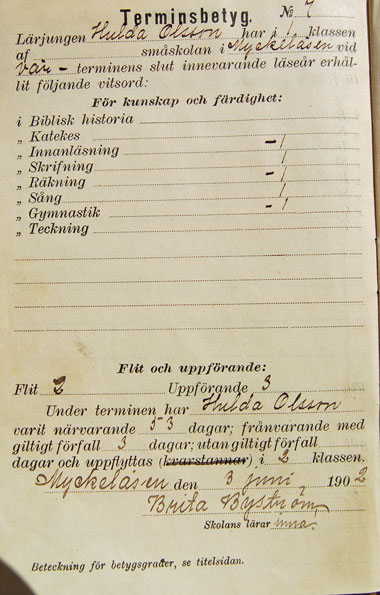 Terminsbetyg. № 7
Lärjungen Hulda Olsson har i 1 klassen
af småskolan i Myckelåsen vid
vår- terminens slut innevarande läseår erhål-
lit följande vitsord:
För kunskap och färdighet:
i Biblisk historia
„ Katekes
„ Innanläsning -1
„ Skrifning 1
„ Räkning -1
„ Sång 1
„ Gymnastik -1
„ Teckning
Flit och uppförande:
Flit 2 Uppförande 3
Under terminen har Hulda Olsson
varit närvarande 53 dagar; frånvarande med
giltigt förfall 3 dagar; utan giltigt förfall
dagar och uppflyttas (kvarstannar) i 2 klassen.
Myckelåsen den 3 juni 1902
Brita Byström
Skolans lärarinna.
Beteckning för betygsgrader, se titelsidan.